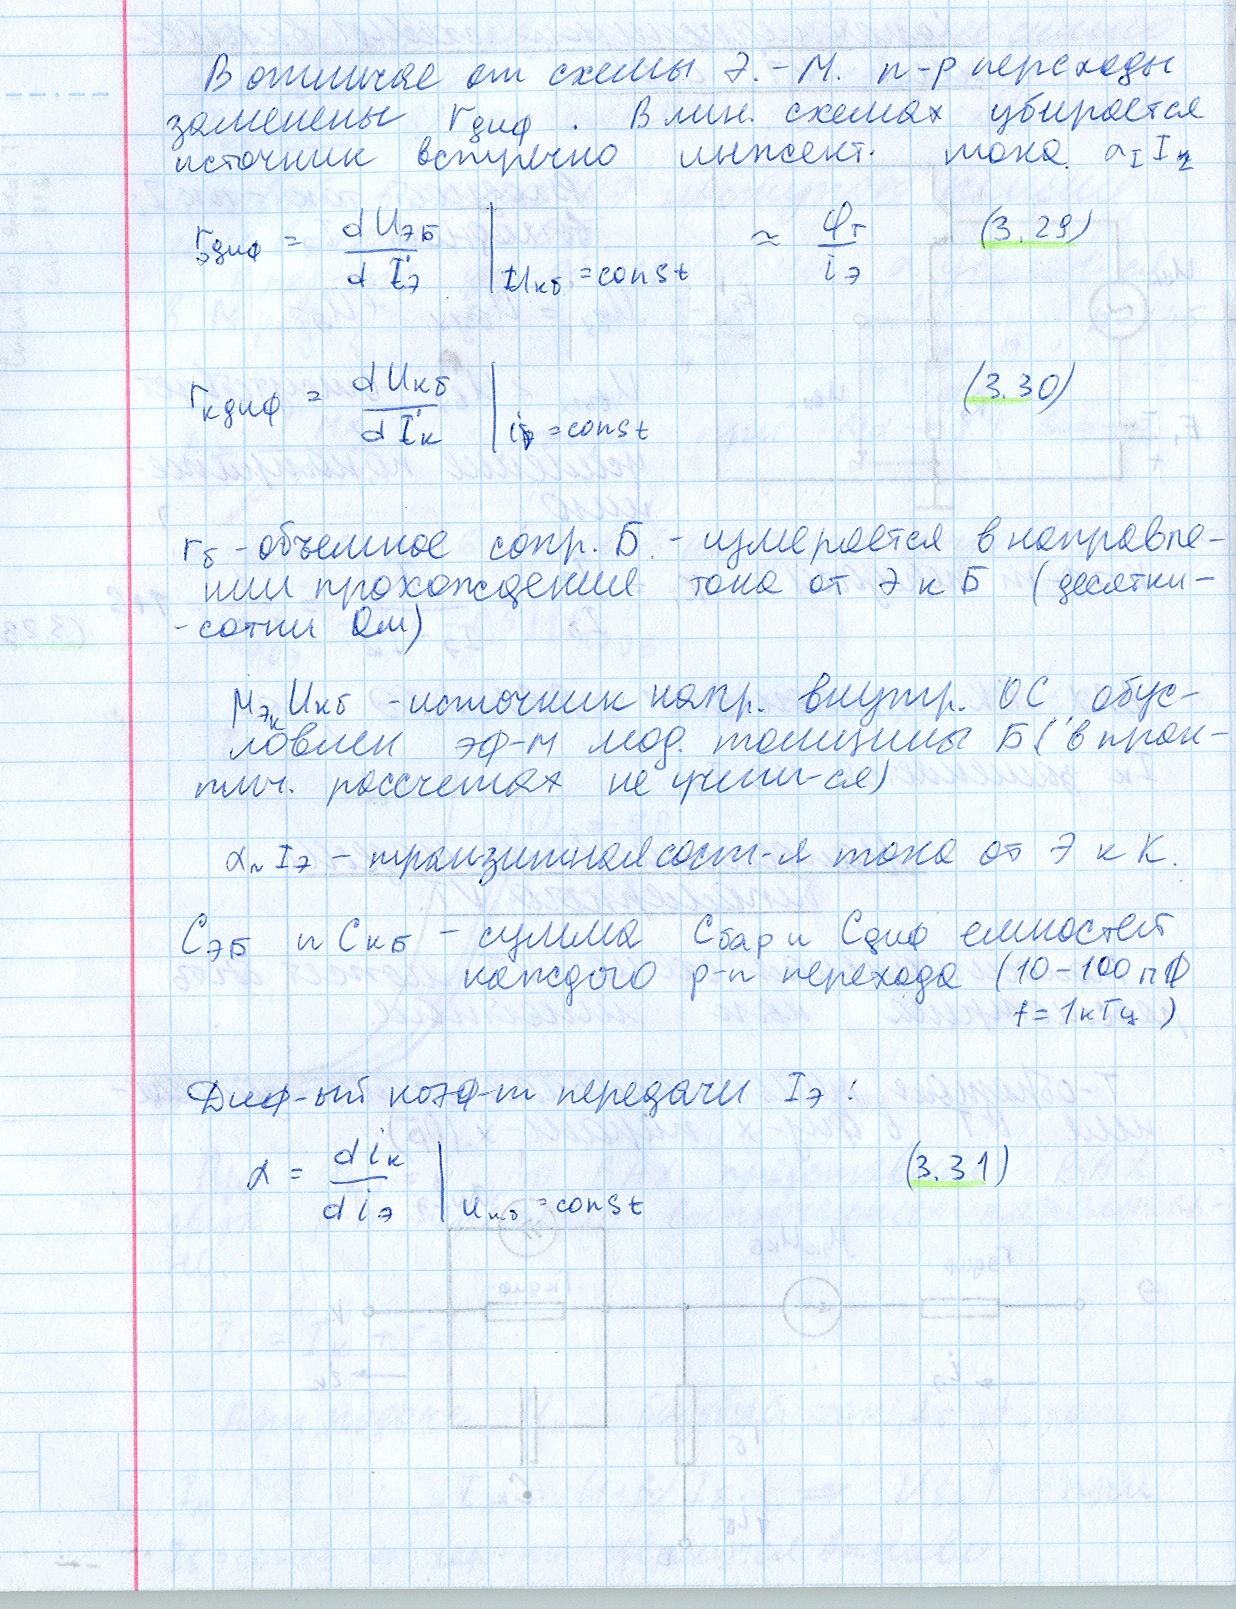 В отличае от схемы Э.-М. п-р переходы
заменены rдиф . В лин. схемах убирается
источник встречно инжект. тока αI I2
rэдиф = dUЭБ / dIЭ | Uкб = const ≈ φт / iэ (3.29)
rкдиф = dUкб / dIк | iэ = const (3.30)
rб - объемное сопр. Б. - измерается в направле-
нии прохождения тока от Э к Б (десятки-
-сотни Ом)
μэк Uкб - источник напр. внутр. ОС обус-
ловлен эф-м мод. толщины Б ( в прак-
тич. рассчетах не учит-ся)
αN IЭ - транзитная сост-я тока от Э к К.
CЭБ и CКБ - сумма Cбар и Cдиф емкостей
каждого р-п перехода (10-100 пФ
f = 1кГц )
Диф-ый коэф-т передачи IЭ :
α = diк / diэ | uкб = const (3.31)